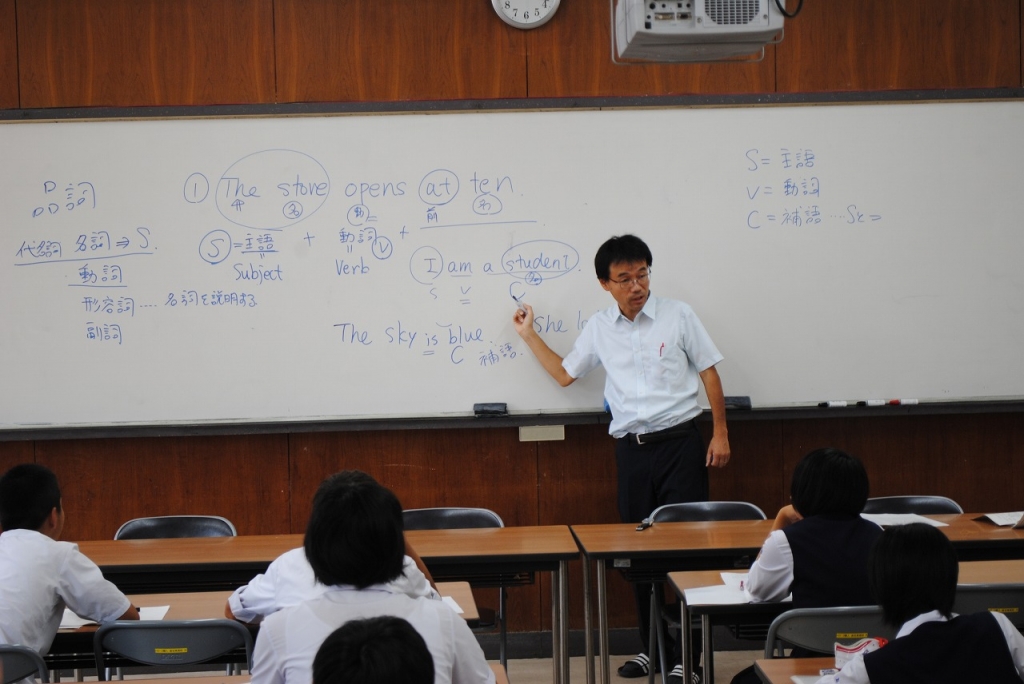 D
DD詞
代名詞 名詞⇒S.
動詞
形容詞 .... 名詞を説明する
副詞
① The store opens at ten.
名 動 前 名
S = 主語 + 動詞 V +
Subject Verb
I am a student.
S V C 名
The sky is blue. She
C 補語.
S = 主語
V = 動詞
C = 補語 ...
8 7 6 5 4